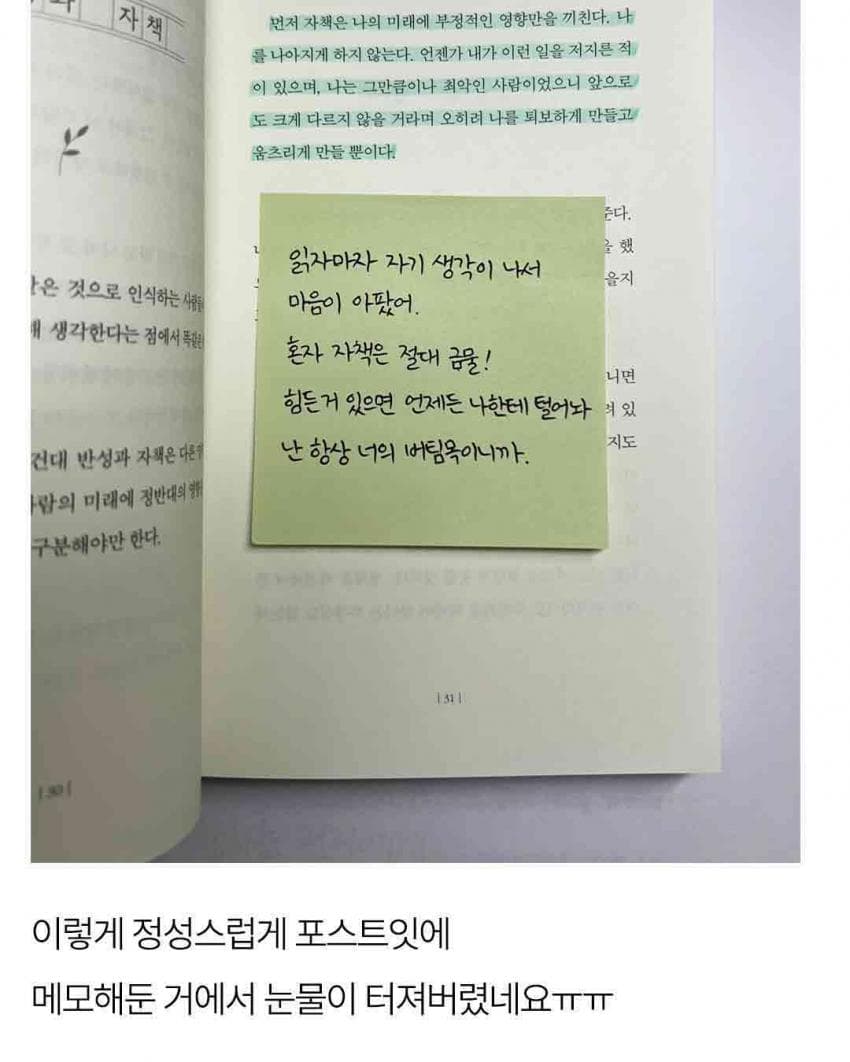 자책
것으로 인식하는
생각한다는 점에서
건대 반성과 자책은
미래에 정반대의
구분해야만 한다.
먼저 자책은 나의 미래에 부정적인 영향만을 끼친다. 나
를 나아지게 하지 않는다. 언젠가 내가 이런 일을 저지른 적
이 있으며, 나는 그만큼이나 최악인 사람이었으니 앞으로
도 크게 다르지 않을 거라며 오히려 나를 퇴보하게 만들고
움츠리게 만들 뿐이다.
준다.
했
을지
니면
있
지도
읽자마자 자기 생각이 나서
마음이 아팠어.
혼자 자책은 절대 금물!
힘든거 있으면 언제든 나한테 털어놔
난 항상 너의 버팀목이니까.
|31|
이렇게 정성스럽게 포스트잇에
메모해둔 거에서 눈물이 터져버렸네요ㅠㅠ